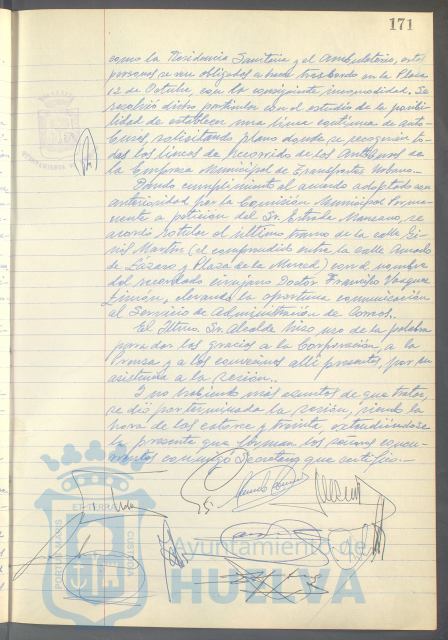 171
como la Residencia Sanitaria y el Ambulatorio, estas
personas se ven obligadas a hacer trasbordo en la Plaza
12 de Octubre, con la consiguiente incomodidad. Se
resolvió dicho particular con el estudio de la posibi-
lidad de establecer una línea continua de auto-
buses, solicitando plano donde se recogieran to-
das las líneas de recorrido de los Autobuses de
la Empresa Municipal de Transportes Urbanos.
Dando cumplimiento al acuerdo adoptado con
anterioridad por la Comisión Municipal Perma-
nente a petición del Sr. Estrada Manzano, se
acordó rotular el último tramo de la calle Gi-
nés Martín (el comprendido entre la calle
de Lázaro y Plaza de la Merced) con el nombre
del recordado cirujano Doctor Francisco Vázquez
Limón, elevando la oportuna comunicación
al Servicio de Administración de Correos.
El Iltmo. Sr. Alcalde hizo uso de la palabra
para dar las gracias a la Corporación, a la
Prensa y a los convecinos allí presentes, por su
asistencia a la sesión.
Y no habiendo más asuntos de que tratar,
se dió por terminada la sesión, siendo la
hora de las catorce y treinta, extendiéndose
la presente que firman los señores concu-
rrentes conmigo Secretario que certifico.
ET TERRAE
PORTUS MARIS
CUSTODIA
Ayuntamiento de
HUELVA